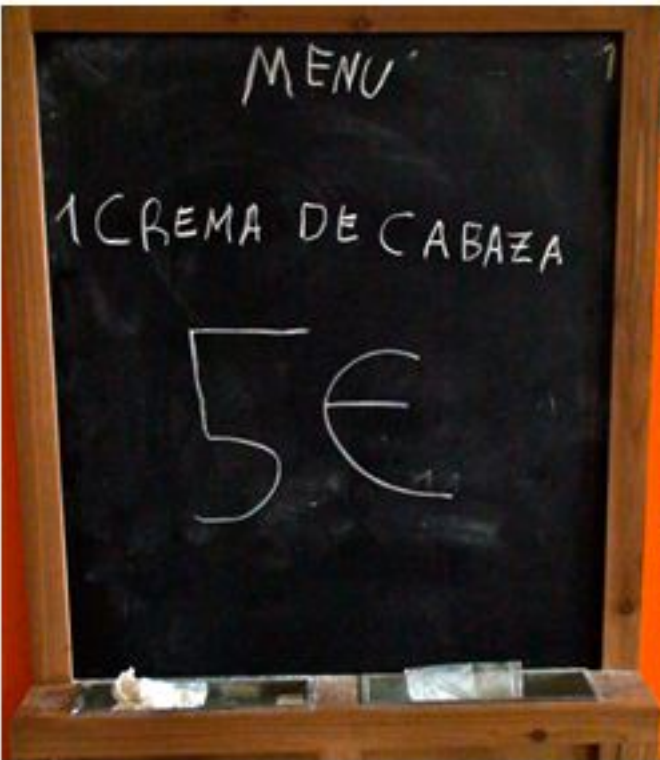 MENU'
1 CREMA DE CABAZA
5€